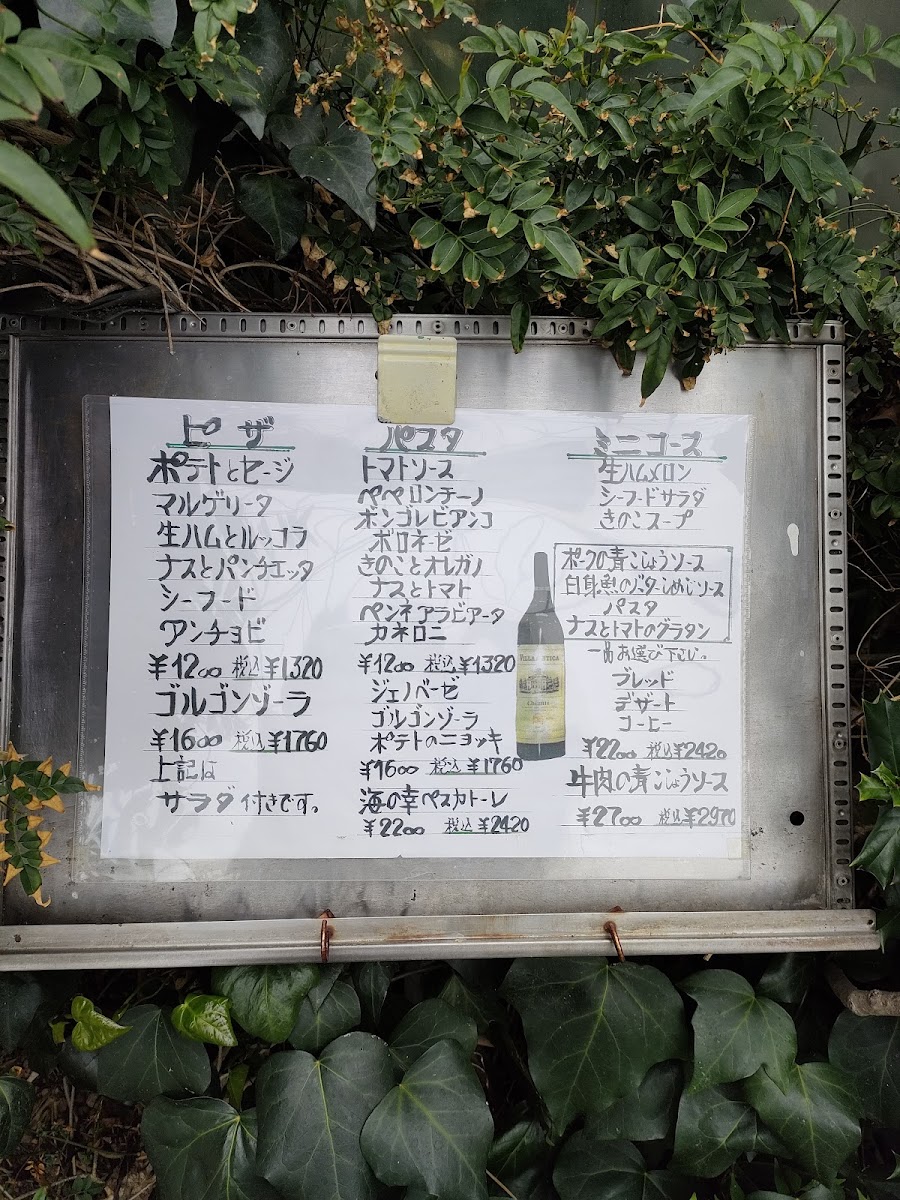 ピザ
ポテトとセージ
マルゲリータ
生ハムとルッコラ
ナスとパンチェッタ
シーフード
アンチョビ
¥1200 税込¥1320
ゴルゴンゾーラ
¥1600 税込¥1760
上記は
サラダ付きです。
パスタ
トマトソース
ペペロンチーノ
ボンゴレビアンコ
ボロネーゼ
きのことオレガノ
ナスとトマト
ペンネアラビアータ
カネロニ
¥1200 税込¥1320
ジェノベーゼ
ゴルゴンゾーラ
ポテトのニョッキ
¥1600 税込¥1760
海の幸ペスカトーレ
¥2200 税込¥2420
ミニコース
生ハムメロン
シーフードサラダ
きのこスープ
ポークの青こしょうソース
白身魚のバターしめじソース
パスタ
ナスとトマトのグラタン
一品お選び下さい。
ブレッド
デザート
コーヒー
¥2200 税込¥2420
牛肉の青こしょうソース
¥2700 税込¥2970